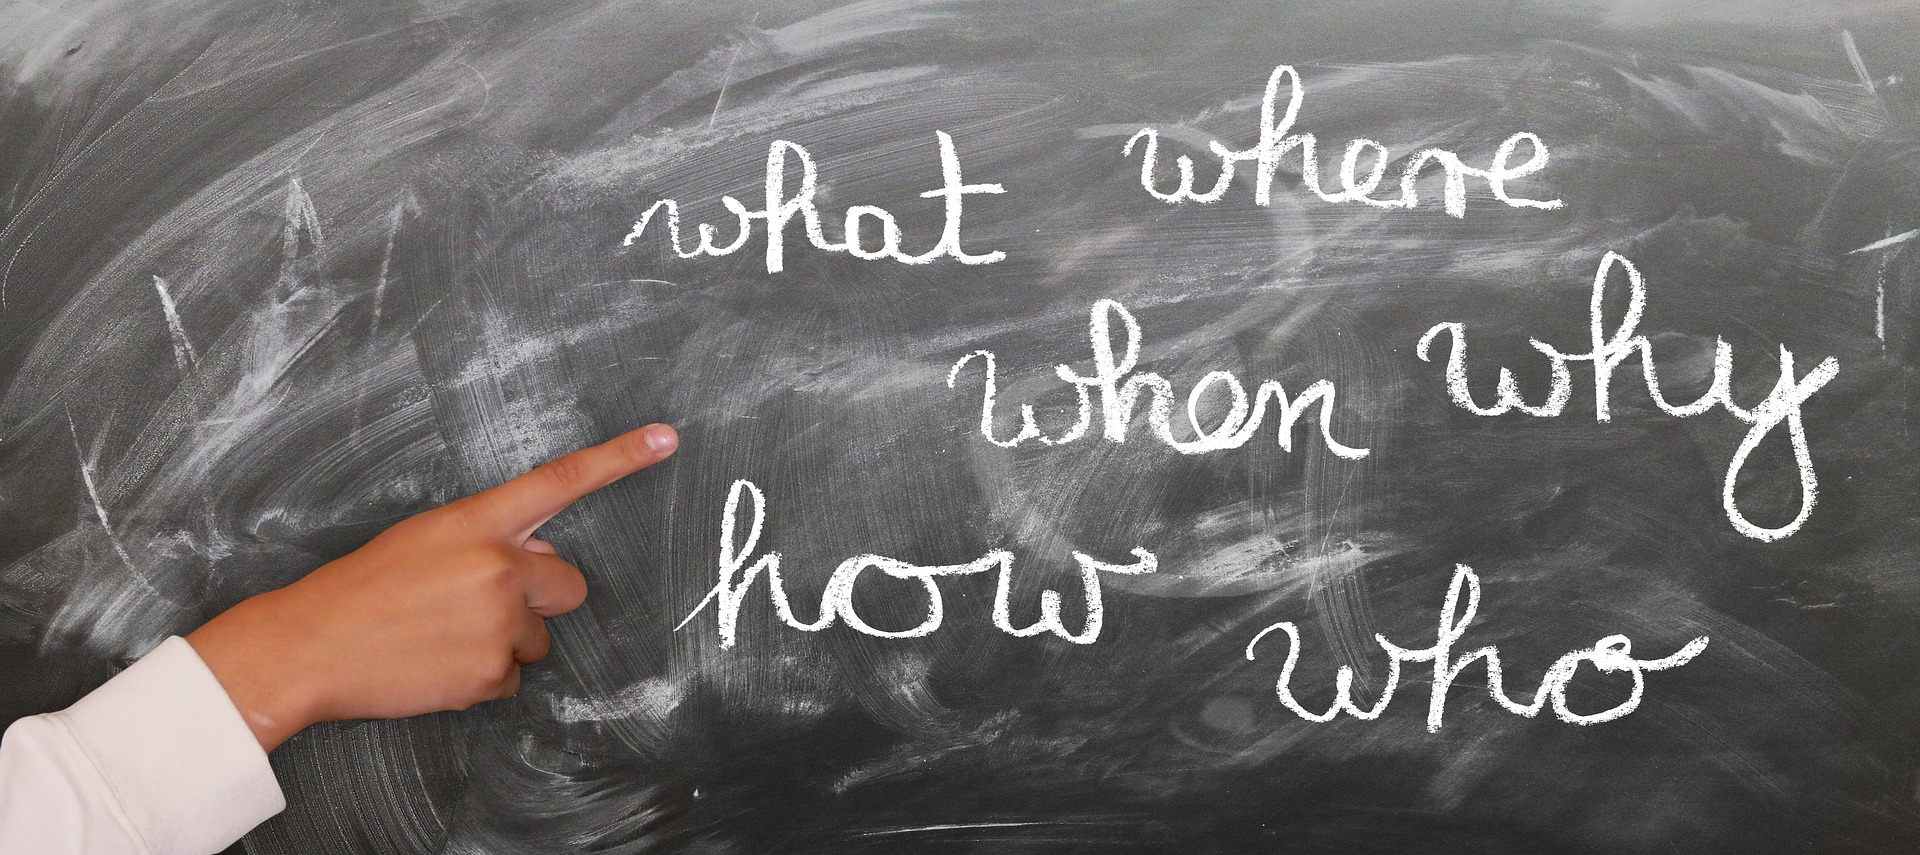 what where
when why
how who